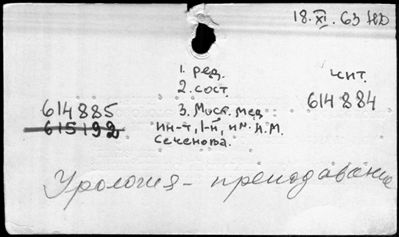 18.XI.63 НВ
1. ред.
2. сост.
3. Моск. мед.
ин-т, 1-й, им. И.М.
Сеченова.
чит.
614884
614885
615192
Урология - преподавание